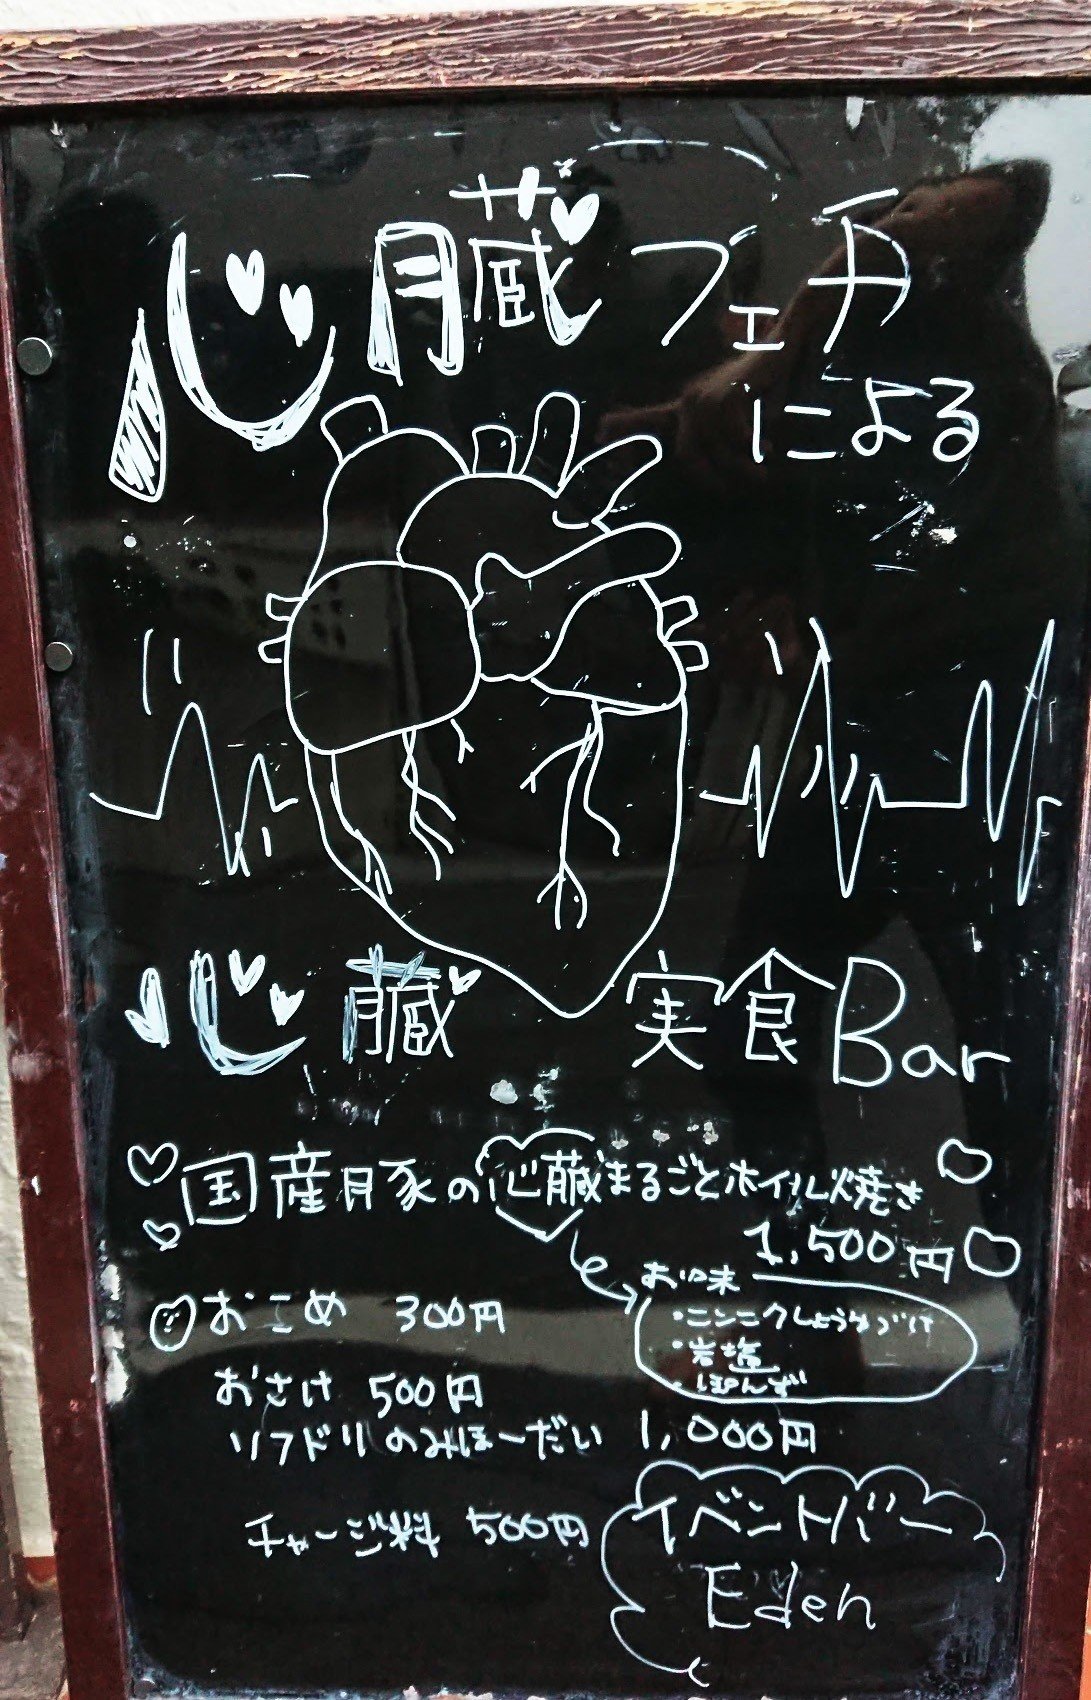 心臓フェチ
による
心臓 実食Bar
国産豚の心臓まるごとホイル焼き
1,500円
お味
・ニンニクしょうゆづけ
・岩塩
・ぽんず
おこめ 300円
おさけ 500円
ソフドリのみほーだい 1,000円
チャージ料 500円
イベントバー
Eden